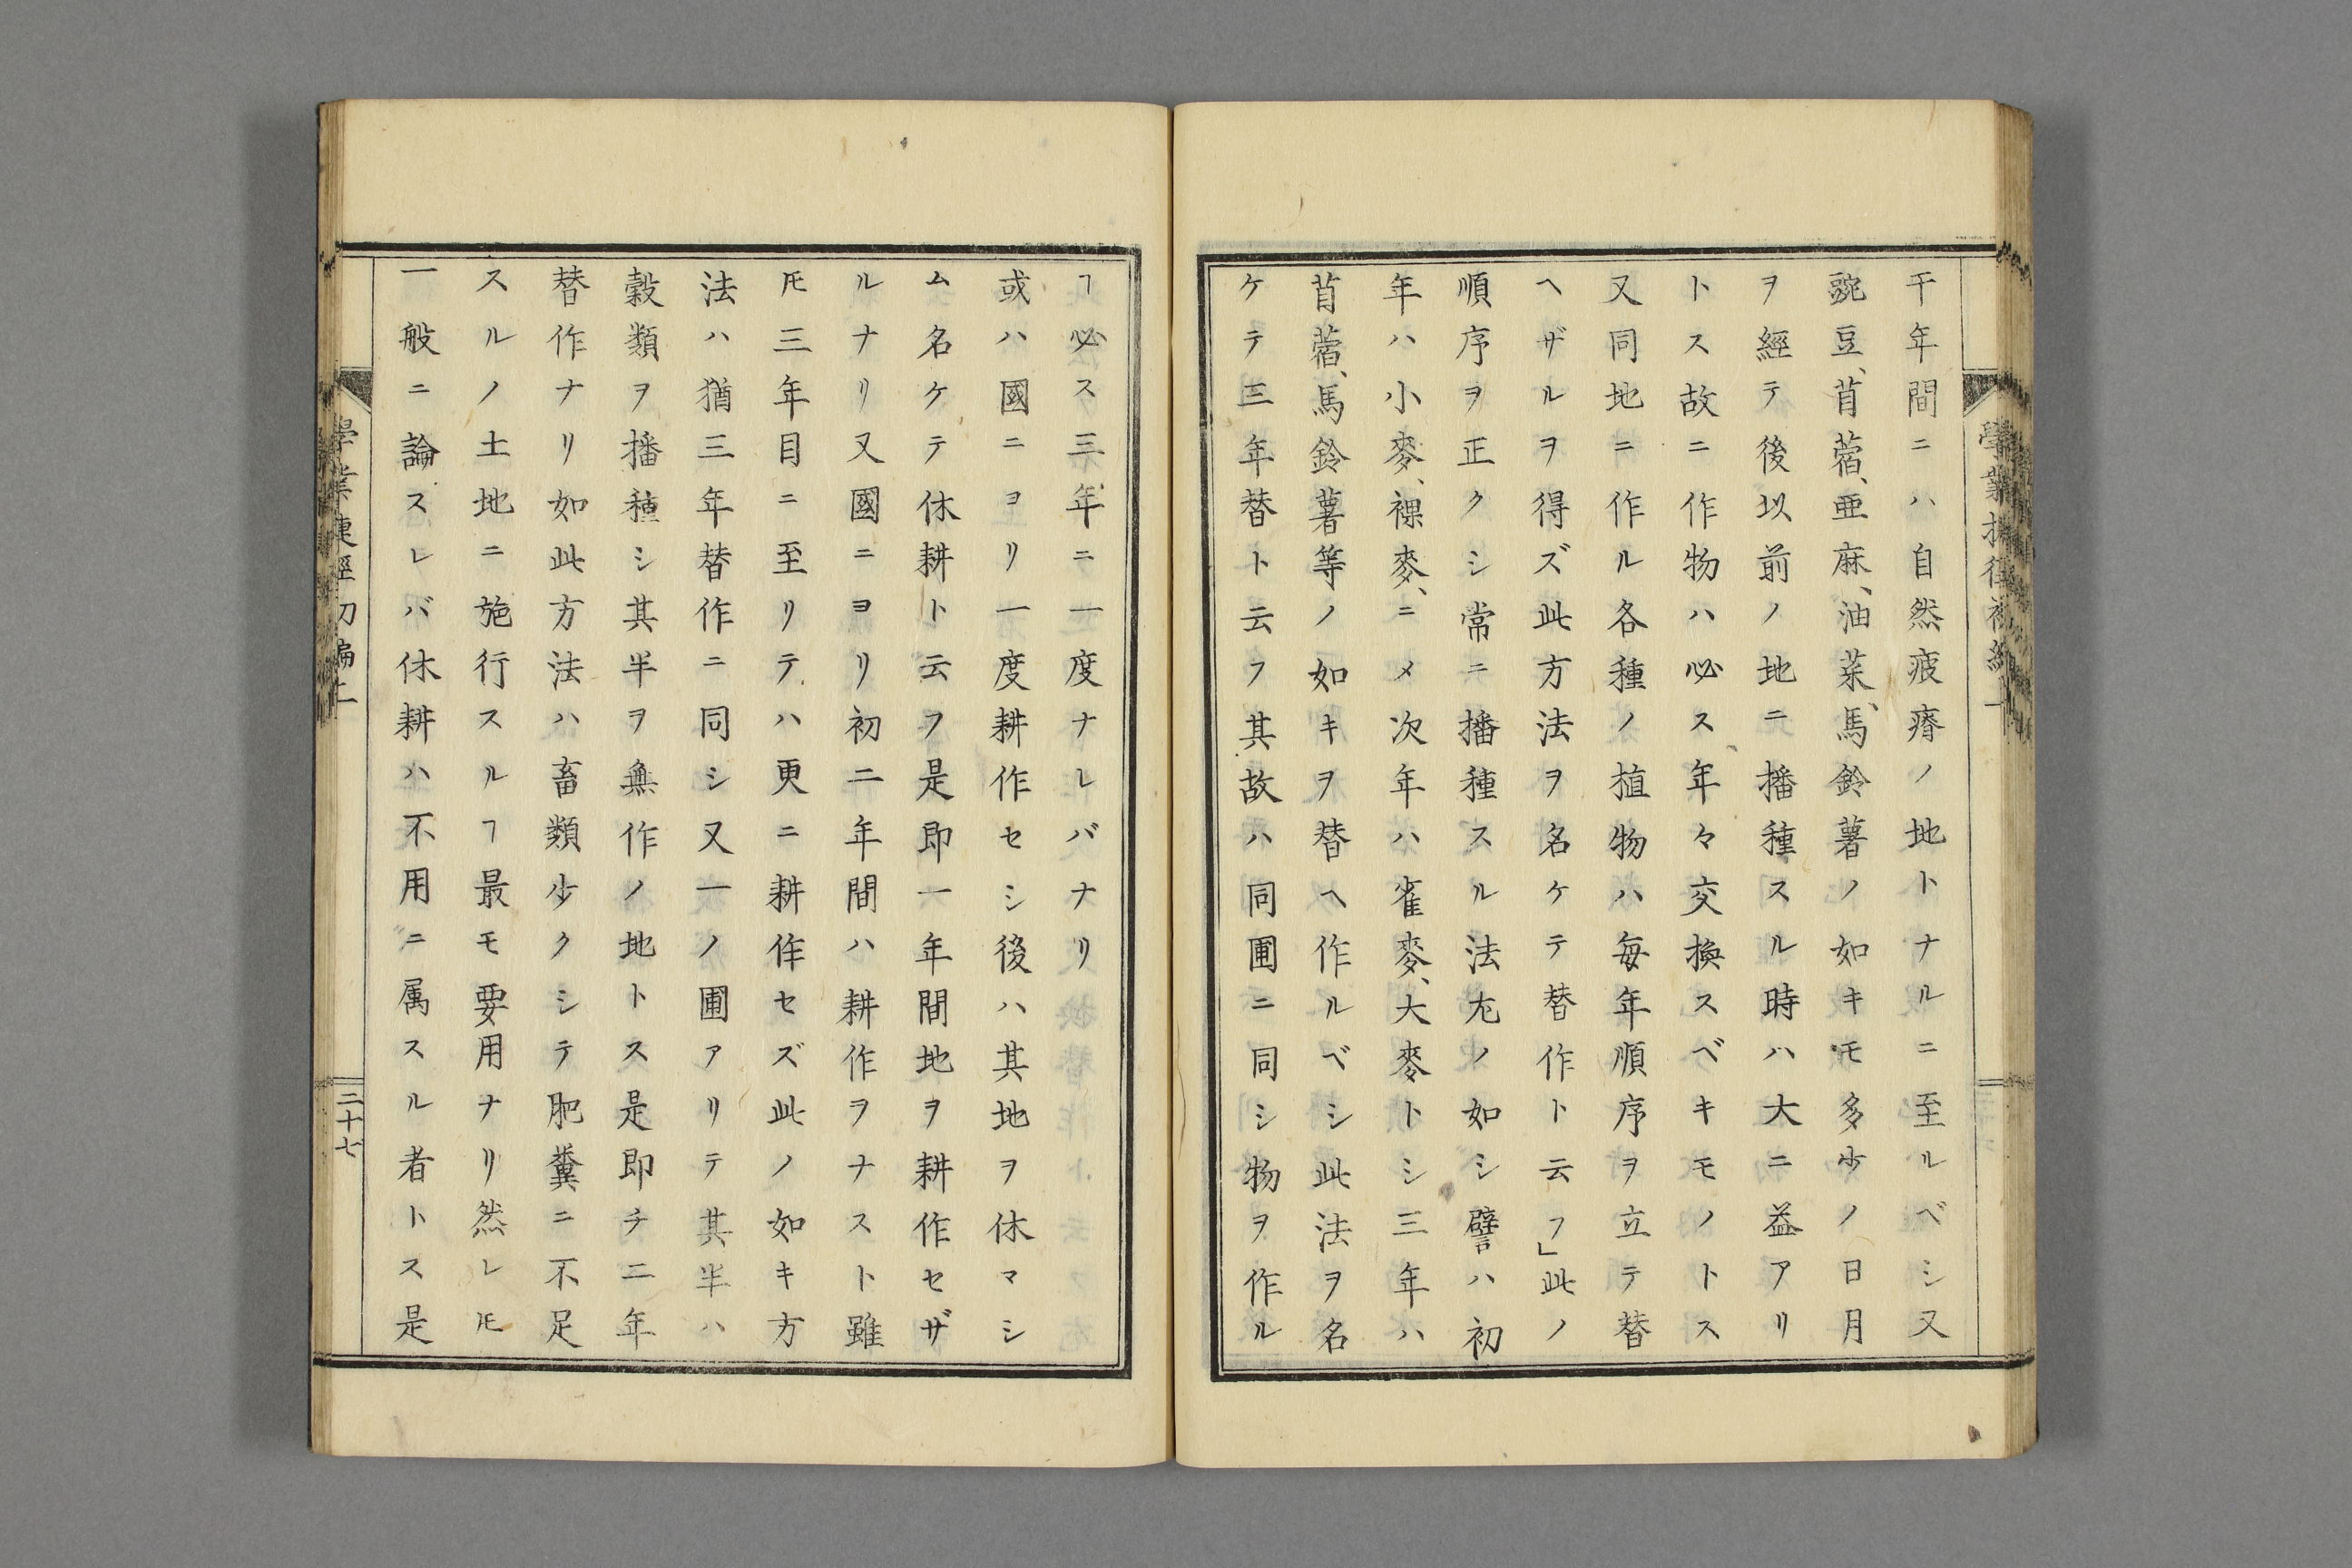 干年間ニハ自然疲瘠ノ地トナルニ至ルベシ又
豌豆、苜蓿、亜麻、油菜、馬鈴薯ノ如キモ多少ノ日月
ヲ經テ後以前ノ地ニ播種スル時ハ大ニ益アリ
トス故ニ作物ハ必ス年々交換スベキモノトス
又同地ニ作ル各種ノ植物ハ毎年順序ヲ立テ替
ヘザルヲ得ズ此方法ヲ名ケテ替作ト云フ」此ノ
順序ヲ正クシ常ニ播種スル法尤ノ如シ譬ハ初
年ハ小麥、裸麥、ニメ次年ハ雀麥、大麥トシ三年ハ
苜蓿、馬鈴薯等ノ如キヲ替ヘ作ルベシ此法ヲ名
ケテ三年替ト云フ其故ハ同圃ニ同シ物ヲ作ル
ヿ必ス三年ニ一度ナレバナリ
或ハ國ニヨリ一度耕作セシ後ハ其地ヲ休マシ
ム名ケテ休耕ト云フ是即一年間地ヲ耕作セザ
ルナリ又國ニヨリ初二年間ハ耕作ヲナスト雖
𪜈三年目ニ至リテハ更ニ耕作セズ此ノ如キ方
法ハ猶三年替作ニ同シ又一ノ圃アリテ其半ハ
穀類ヲ播種シ其半ヲ無作ノ地トス是即チ二年
替作ナリ如此方法ハ畜類少クシテ肥糞ニ不足
スルノ土地ニ施行スルヿ最モ要用ナリ然レ𪜈
一般ニ論スレバ休耕ハ不用ニ属スル者トス是
二十七